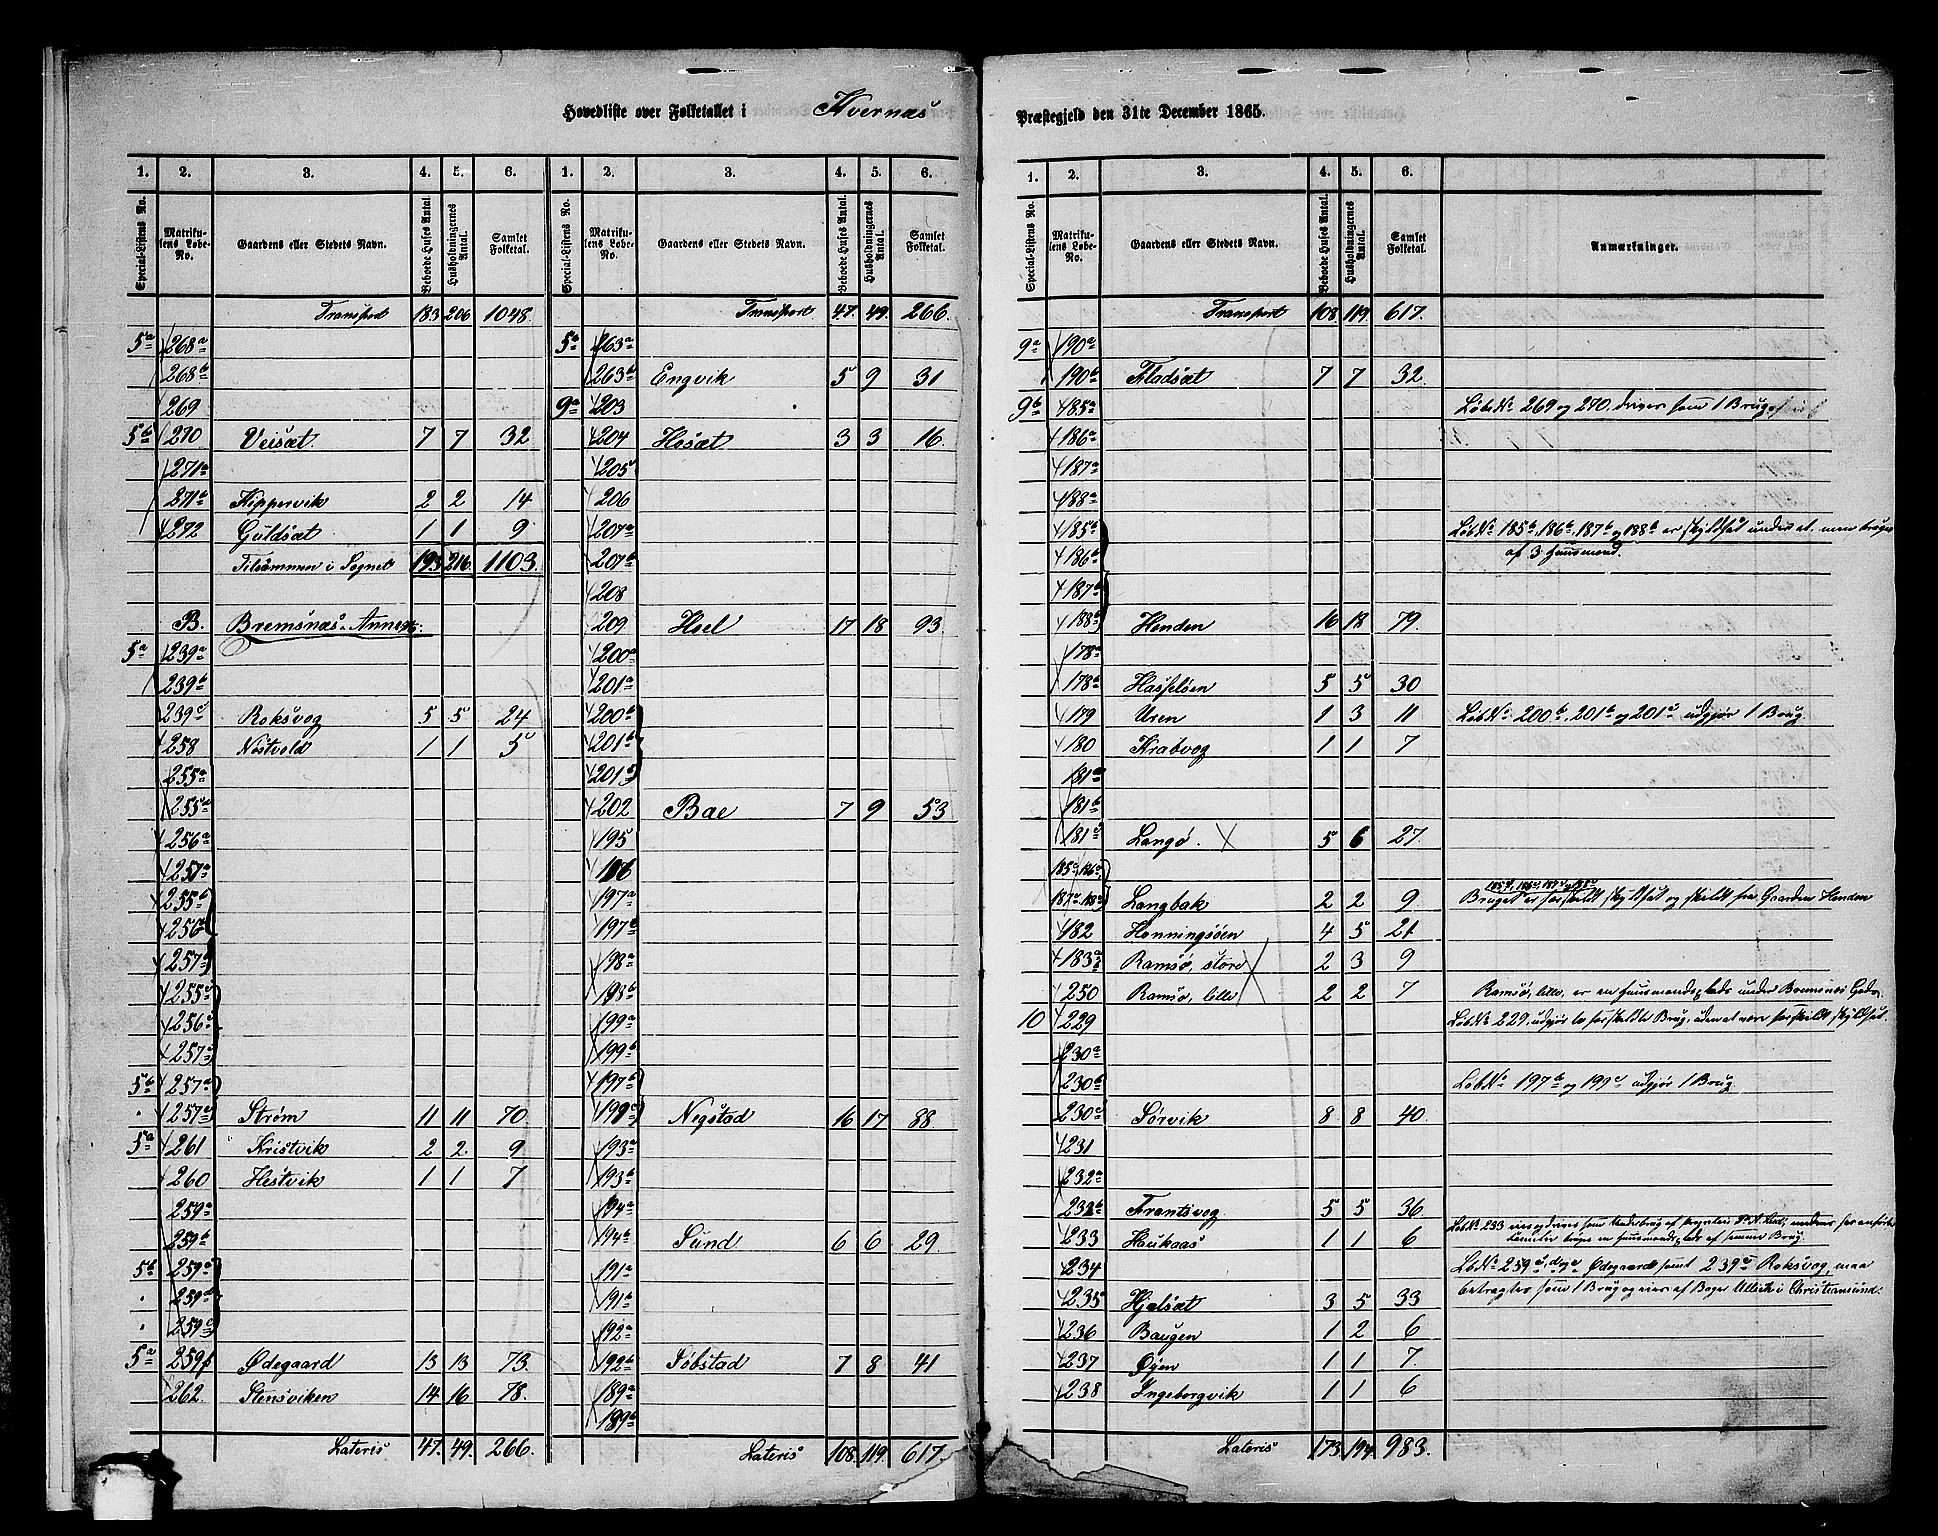 Hovedliste over Folketallet i Kvernæs
1. 2. 3. 4. 5. 6.
Special-Listens No. Matrikulens Løbe-No. Gaardens eller Stedets Navn. Beboede Huses Antal. Husholdningernes Antal. Samlet Folketal.
Transport 183 206 1048.
5a 268a
268b
269
5b 270 Veisæt. 7 7 32
271a
271b Kippervik 2 2 14
272 Guldsæt 1 1 9
Tilsammen i Sognet 193 216. 1103.
B. Bremsnæs-Annex:
5a 239a
239b
239c Roksvog 5 5 24
258 Nöstvold 1 1 5
255a
255a
256a
257a
255b
256b
257b
255c
256c
257c
5b 257a
" 257a Strøm 11 11 70.
5a 261 Kristvik 2 2. 9
260 Hestvik 1 1 7
259a
259b
5b 259c
" 259d
" 259e
5a 259f Ødegaard 13 13 73.
262. Stensviken 14 16 78.
Lateris 47. 49. 266.
1. 2. 3. 4. 5. 6.
Special-Listens No. Matrikulens Løbe-No. Gaardens eller Stedets Navn. Beboede Huses Antal. Husholdningernes Antal. Samlet Folketal.
Transport 47. 49. 266.
5a 263a
263b Engvik 5 9 31
9a 203
204 Hosæt 3 3 16.
205
206
207a
207b
208
209 Hoel 17 18 93.
200a
201a
200b
201b
201c
202 Bae 7 9 53
195
196
197a
197b
198a
198b
199a
199b
197b
199c Nigstad 16 17 88
193a
193b
194a
194b Sund 6 6 29
191a
191b
192a
192b Söbstad 7 8 41
189a
189b
Lateris 108. 119. 617.
Præstegjeld den 31te December 1865.
1. 2. 3. 4. 5. 6.
Special-Listens No. Matrikulens Løbe-No. Gaardens eller Stedets Navn. Beboede Huses Antal. Husholdningernes Antal. Samlet Folketal. Anmærkninger.
Transport 108. 119 617.
9a 190a
190b Fladsæt 7 7 32.
9b 185a LøbeNo 269 og 270. drives som 1 Brug
186a
187a
188a
185b LøbNo 185b, 186b, 187b og 188b er skyldsat under et. men bruges
186b af 3 Huusmænd.
187b
188b Henden 16 18 79.
178a
178b Hasseløen 5 5 30
179 Uren 1 3 11 LøbNo 200b, 201b og 201c udgjør 1 Brug.
180 Krabvog 1 1 7
181a
181b
181c Langø. X 5 6 27.
185c, 186c, 185c, 186c, 187c og 188c
187c, 188c Langbak 2 2 9 Bruget er særskilt skyldsat og skildt fra Gaarden Henden
182 Honningsøen 4 5 21
183a Ramsø, store 2 3 9
250 Ramsø, lille 2 2 7 Ramsø, lille, er en Huusmandsplads under Bremsnæs Gods.
10 229 LøbNo 229, udgjør to særskildte Brug, uden at være særskildt skyldsat.
230a
230b LøbNo 197b og 199c udgjør 1 Brug.
230c Sørvik 8 8 40.
231
232a
232b Frantsvog 5 5 36
233 Haukaas 1 1 6 LøbNo 233 eies og drives som Underbrug af
en Huusmandsplads af samme Brug.
234 LøbNo 259c, d og e Ødegaard samt 239c Roksvog, maa
235 Hjelsæt 3 5 33 betragtes som 1 Brug og eies af Boger Ulleck i Christiansund.
236 Baugen 1 2 6
237 Øyen 1 1 7.
238 Ingeborgvik 1 1 6
Lateris 173. 194. 983.